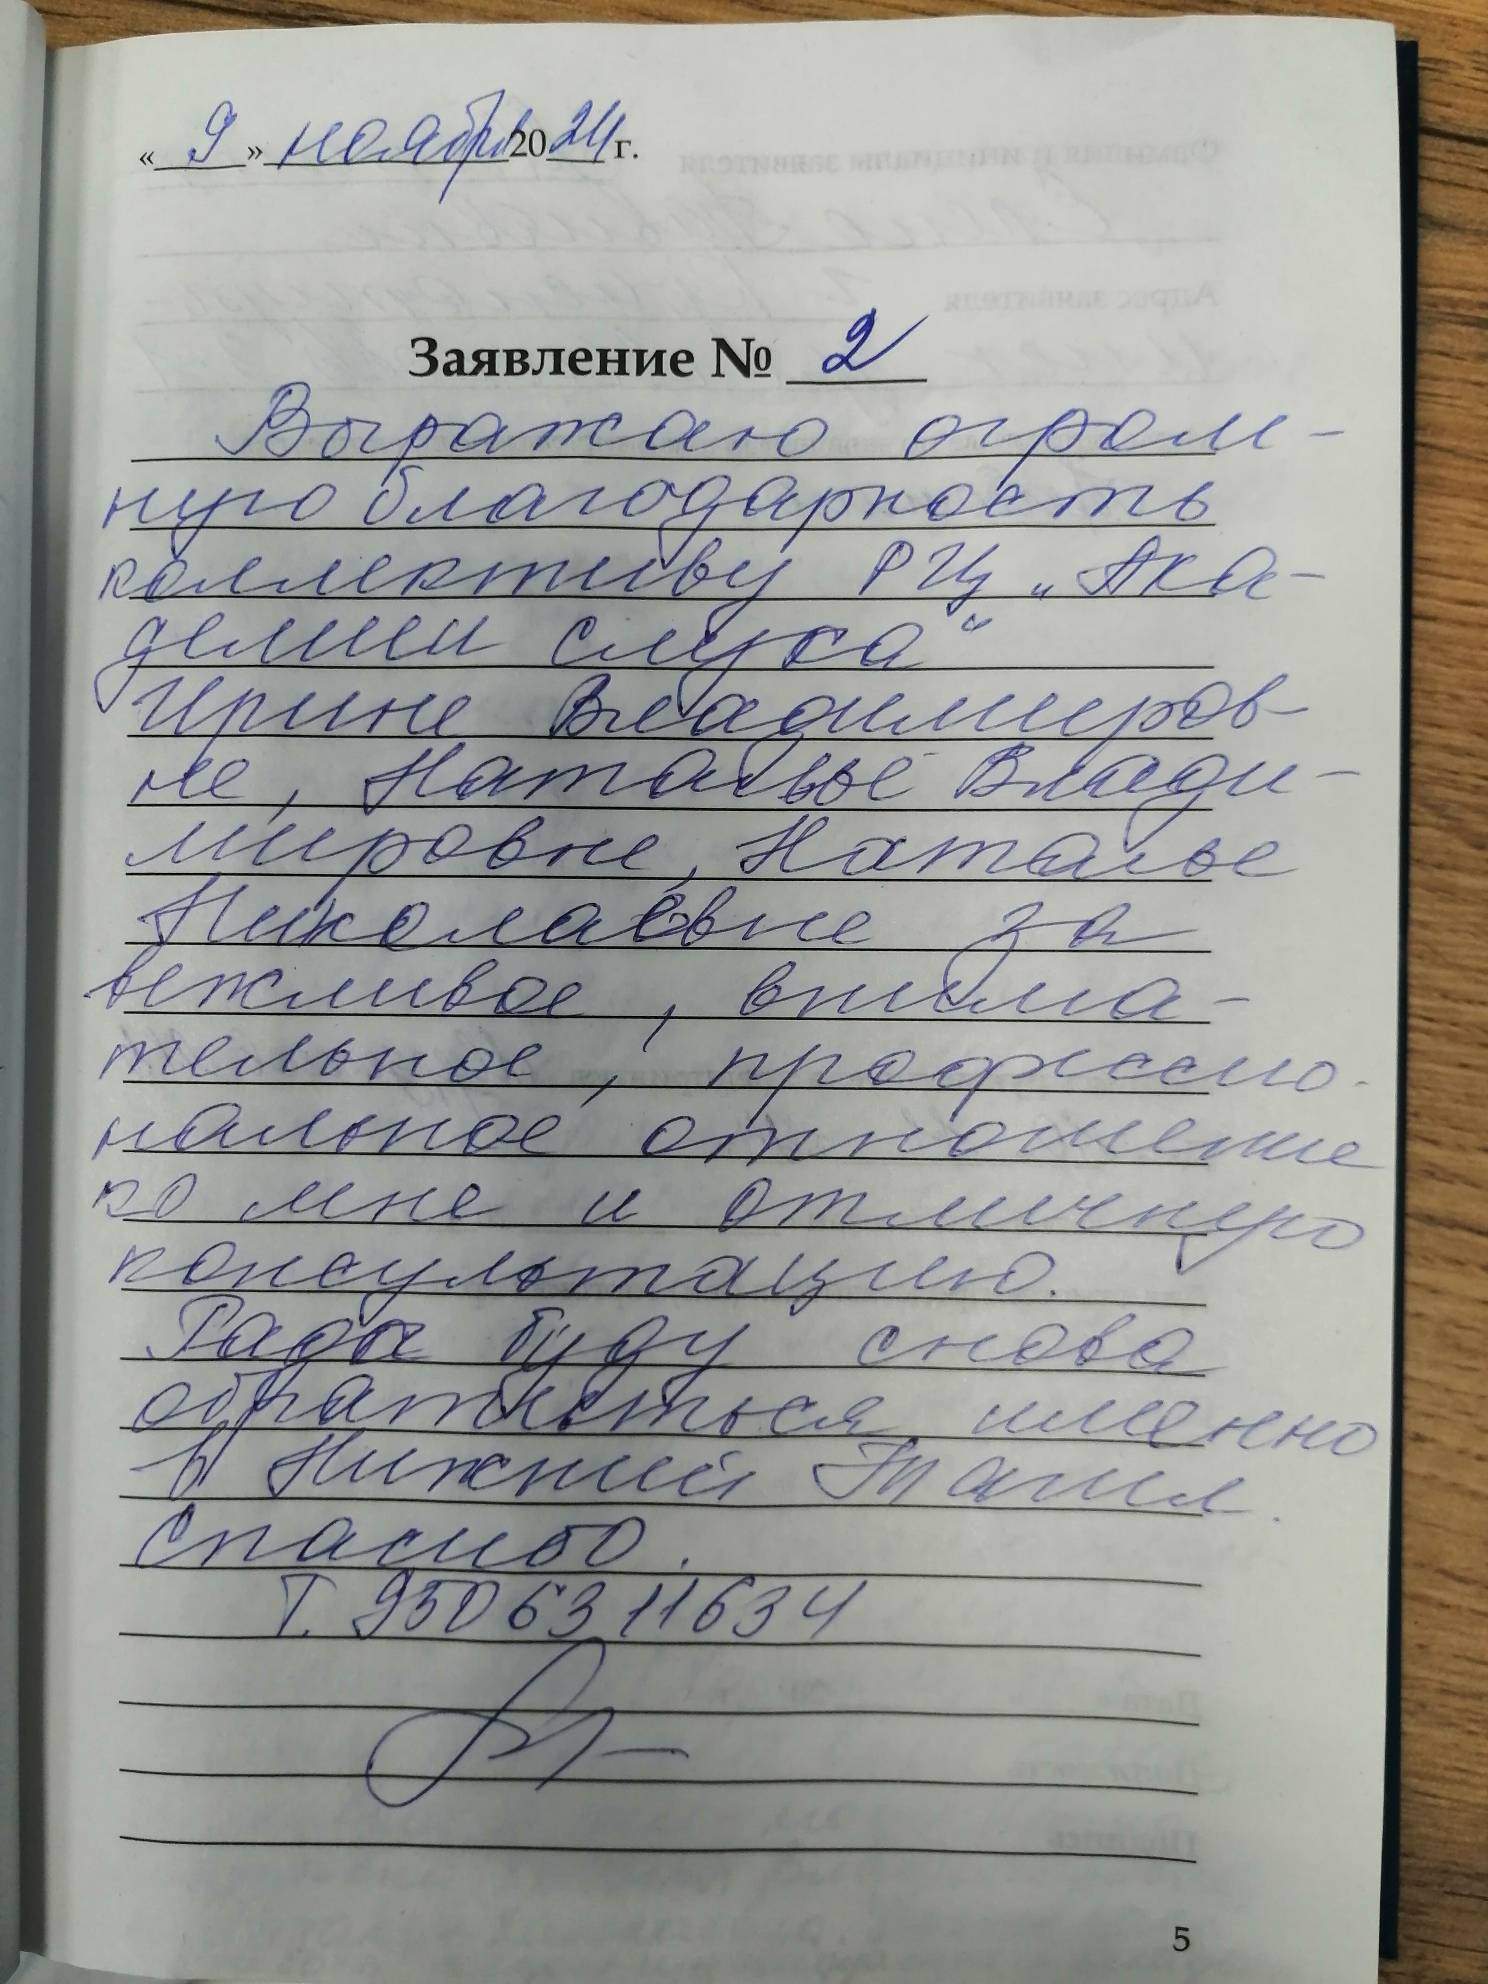 « 9 » ноября 2024 г.
Заявление № 2
Выражаю огром-
ную благодарность
коллективу РЦ „Ака-
демии слуха“
Ирине Владимиров-
не, Наталье Влади-
мировне, Наталье
Николаевне за
вежливое, внима-
тельное, профессио-
нальное отношение
ко мне и отличную
консультацию.
Рада буду снова
обратиться именно
в Нижний Тагил.
Спасибо.
Т. 9506311634
5